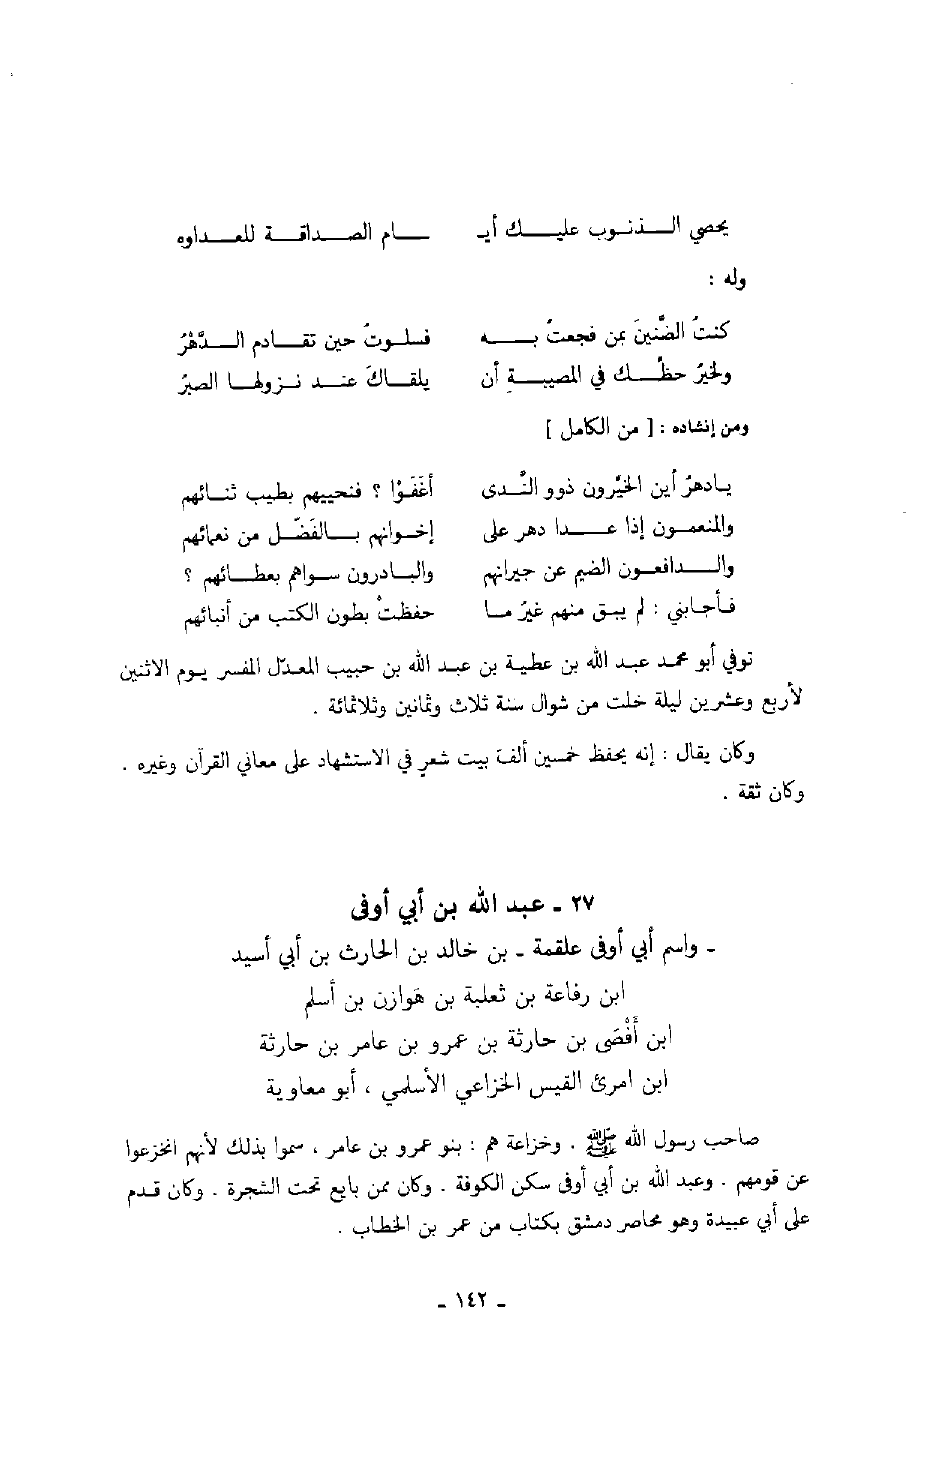 يحصي الـذنـوب عليـك أيـ ـام الصـداقـة للعـداوه
وله :
كنتُ الضَّنينَ بمن فجعتُ بـه فسلـوتُ حين تقـادم الـدَّهْرُ
ولخيرُ حظِّـك في المصيبـةِ أن يلقـاكَ عنـد نـزولهـا الصبرُ
ومن إنشاده : [ من الكامل ]
يـادهرُ أين الخيِّرون ذوو النَّـدى أغَفَـوْا ؟ فنحييهم بطيب ثنـائهم
والمنعمـون إذا عـدا دهر على إخـوانهم بـالفَضْـل من نعمائهم
والـدافعـون الضيم عن جيرانهم والبـادرون سـواهم بعطـائهم ؟
فـأجـابني : لم يبـق منهم غيرُ مـا حفظتْ بطون الكتب من أنبائهم
توفي أبو محمد عبد الله بن عطية بن عبد الله بن حبيب المعدّل المفسر يوم الاثنين
لأربع وعشرين ليلة خلت من شوال سنة ثلاث وثمانين وثلاثمائة .
وكان يقال : إنه يحفظ خمسين ألفَ بيت شعرٍ في الاستشهاد على معاني القرآن وغيره .
وكان ثقة .
٢٧ ـ عبد الله بن أبي أوفى
ـ واسم أبي أوفى علقمة ـ بن خالد بن الحارث بن أبي أسيد
ابن رفاعة بن ثعلبة بن هَوازن بن أسلم
ابن أَفْصَى بن حارثة بن عمرو بن عامر بن حارثة
ابن امرئ القيس الخزاعي الأسلمي ، أبو معاوية
صاحب رسول الله ﷺ . وخزاعة هم : بنو عمرو بن عامر ، سموا بذلك لأنهم انخزعوا
عن قومهم . وعبد الله بن أبي أوفى سكن الكوفة . وكان ممن بايع تحت الشجرة . وكان قدم
على أبي عبيدة وهو محاصر دمشق بكتاب من عمر بن الخطاب .
ـ ١٤٢ ـ